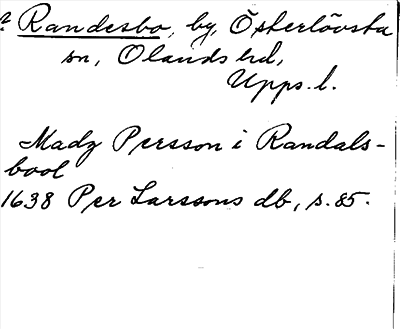 ? Randesbo, by, Österlövsta
sn, Olands hd,
Upps. l.
Madz Persson i Randals-
bool
1638 Per Larssons db, s. 85.